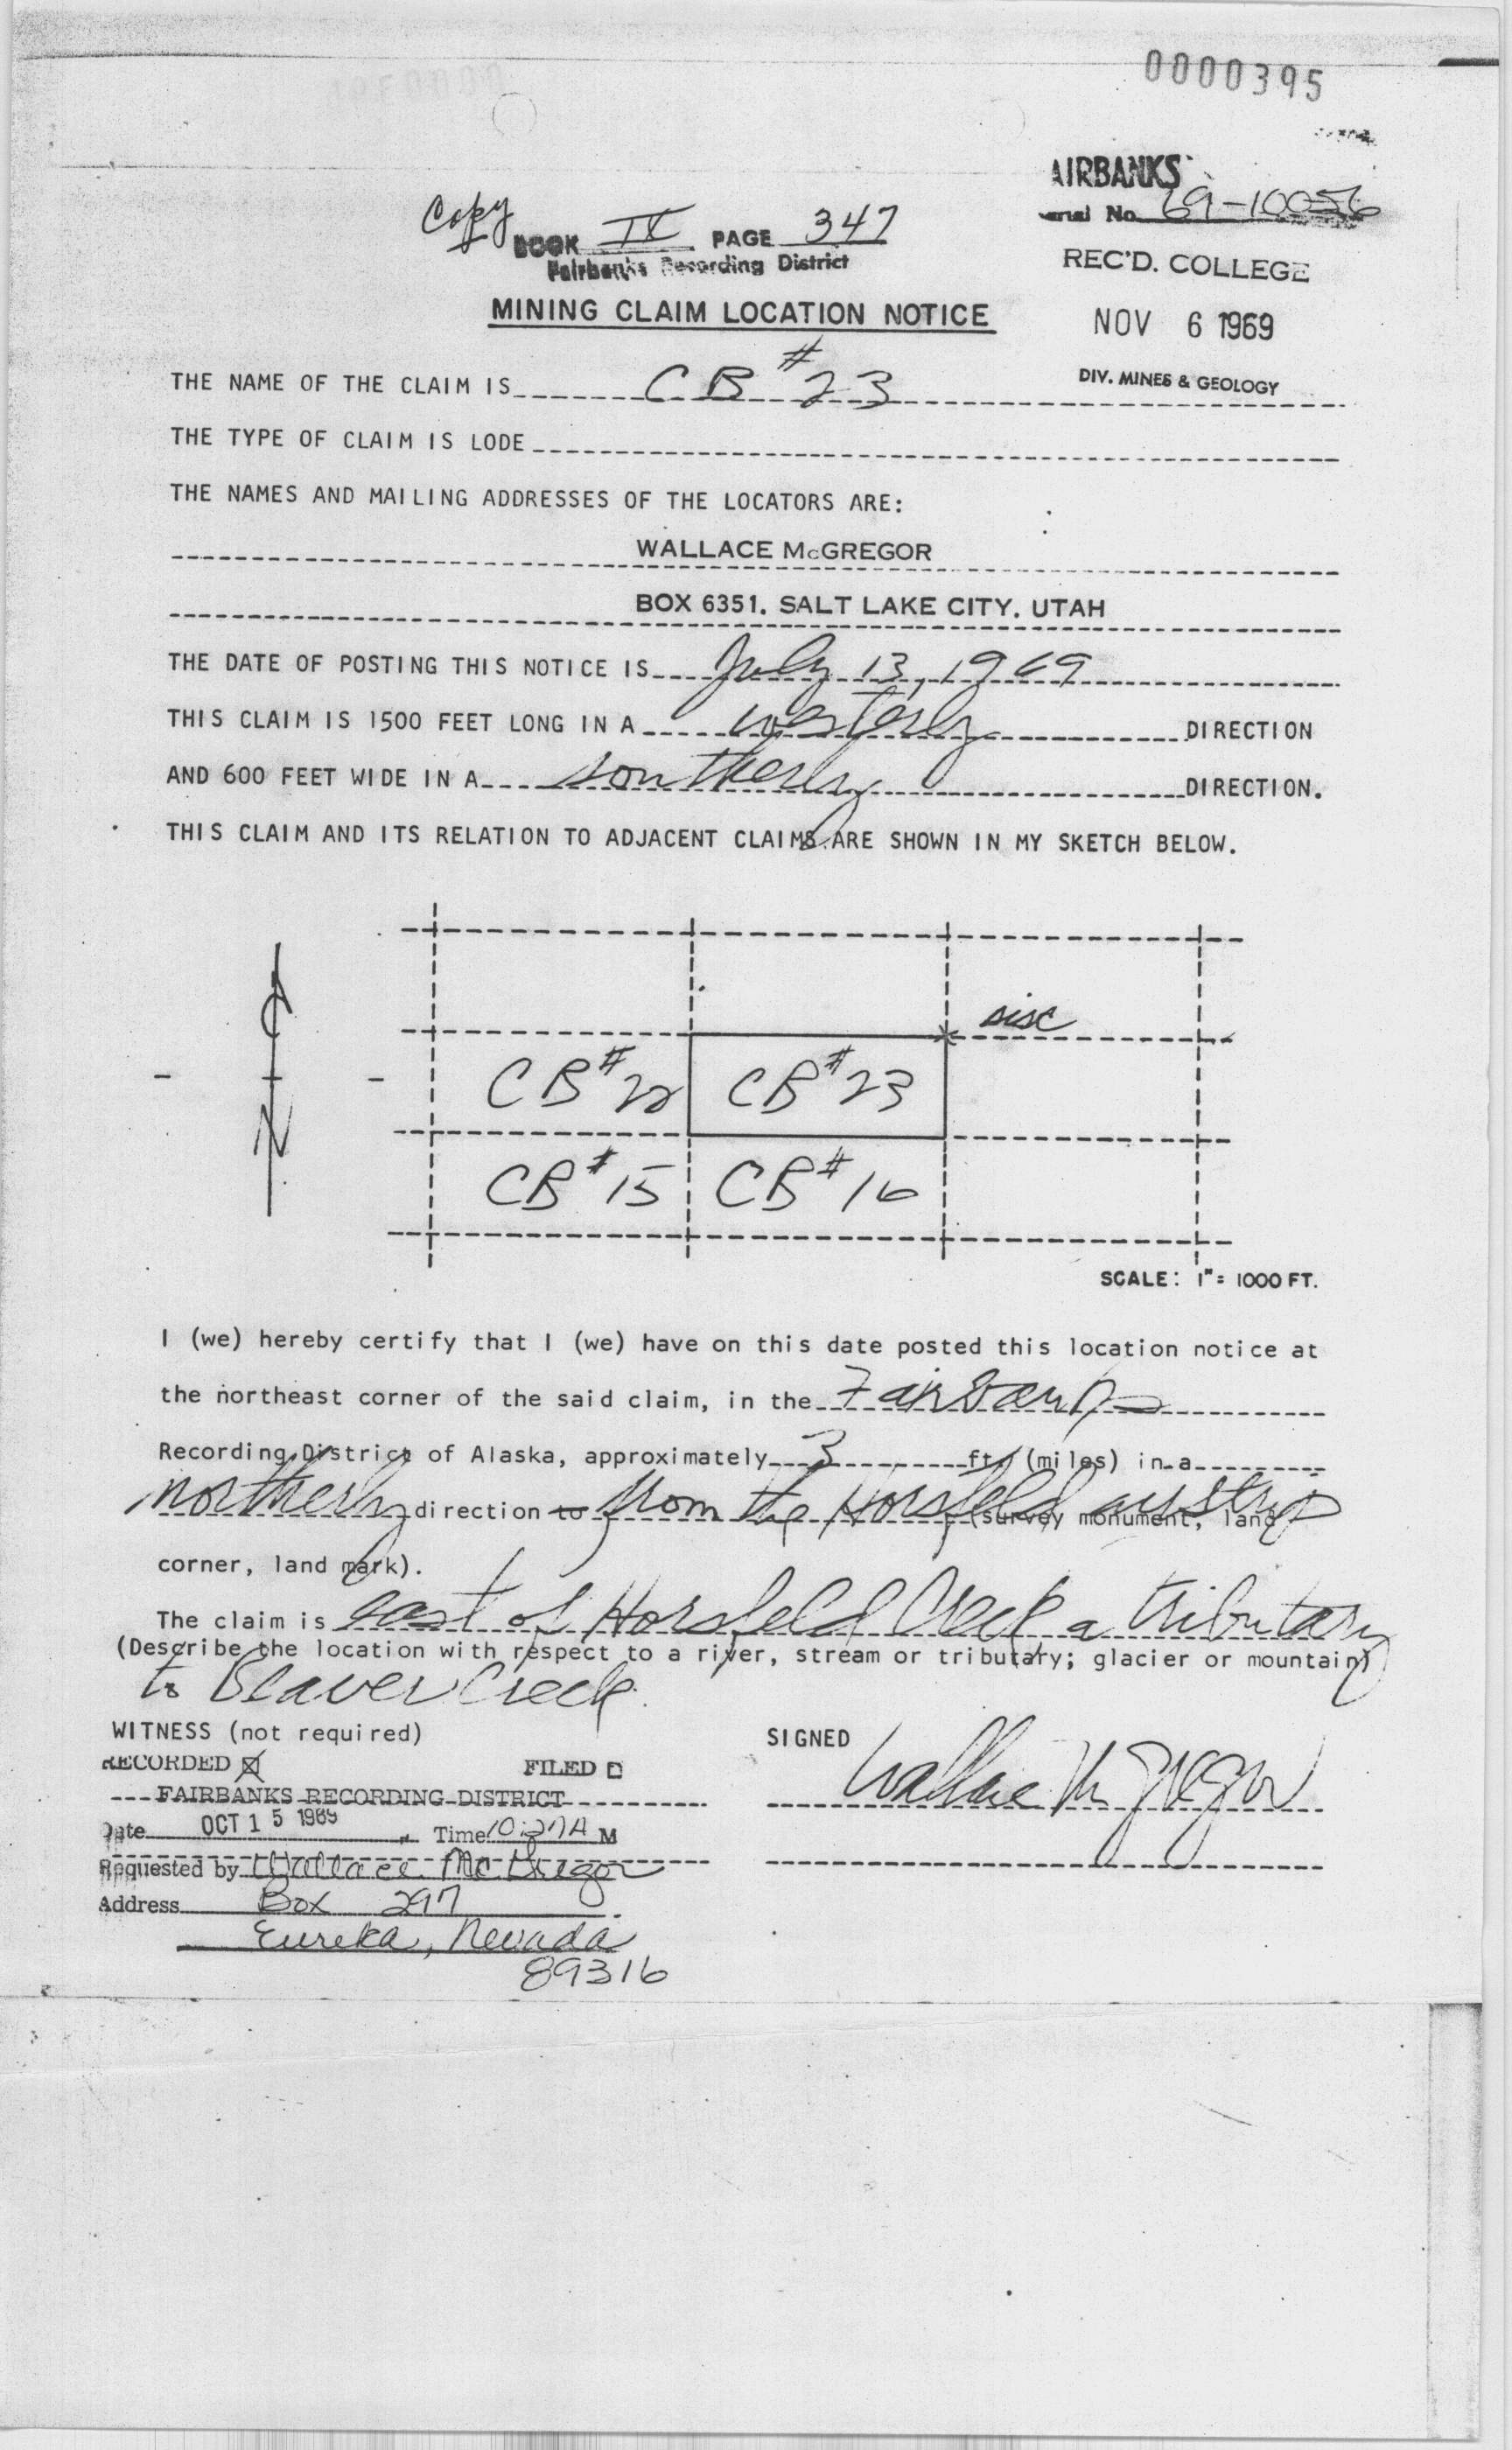 0000395
AIRBANKS
No. 69-10056
Copy
BOOK IV PAGE 347
Fairbanks Recording District
REC'D. COLLEGE
MINING CLAIM LOCATION NOTICE
NOV 6 1969
DIV. MINES & GEOLOGY
THE NAME OF THE CLAIM IS CB #23
THE TYPE OF CLAIM IS LODE
THE NAMES AND MAILING ADDRESSES OF THE LOCATORS ARE:
WALLACE McGREGOR
BOX 6351. SALT LAKE CITY. UTAH
THE DATE OF POSTING THIS NOTICE IS July 13, 1969
THIS CLAIM IS 1500 FEET LONG IN A westerly DIRECTION
AND 600 FEET WIDE IN A southerly DIRECTION.
THIS CLAIM AND ITS RELATION TO ADJACENT CLAIMS ARE SHOWN IN MY SKETCH BELOW.
disc
CB #22 CB #23
N
CB #15 CB #16
SCALE: 1" = 1000 FT.
I (we) hereby certify that I (we) have on this date posted this location notice at
the northeast corner of the said claim, in the Fairbanks
Recording District of Alaska, approximately 3 ft. (miles) in a
northerly direction to from the Horsfeld airstrip (survey monument, land
corner, land mark).
The claim is east of Horsfeld Creek a tributary
(Describe the location with respect to a river, stream or tributary; glacier or mountain)
to Beaver Creek.
WITNESS (not required) SIGNED Wallace McGregor
RECORDED ☒ FILED ☐
FAIRBANKS RECORDING DISTRICT
Date OCT 15 1969 Time 10:27A M
Requested by Wallace McGregor
Address Box 297
Eureka, Nevada
89316